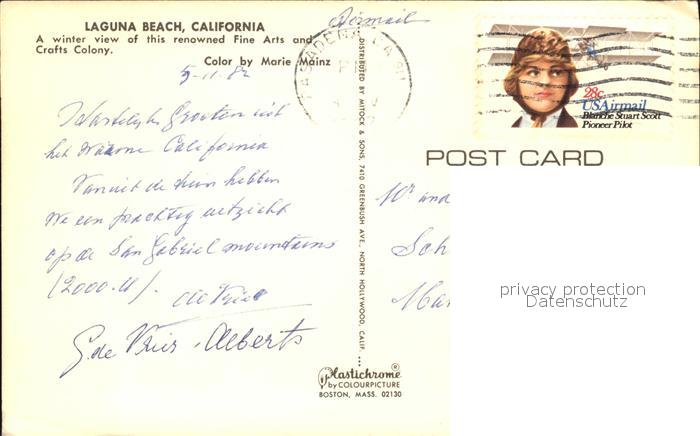 LAGUNA BEACH, CALIFORNIA
A winter view of this renowned Fine Arts and
Crafts Colony.
Color by Marie Mainz
Airmail
PASADENA, CA
PM
28c
USAirmail
Blanche Stuart Scott
Pioneer Pilot
5-11-82
Hartelijke Groeten uit
het warme California
Vanuit de tuin hebben
We een prachtig uitzicht
op de San Gabriel mountains
(2000 M).
de Vries
G. de Vries - Alberts
DISTRIBUTED BY MITOCK & SONS, 7410 GREENBUSH AVE., NORTH HOLLYWOOD, CALIF.
POST CARD
and
Sch
privacy protection
Datenschutz
Plastichrome®
by COLOURPICTURE
BOSTON, MASS. 02130